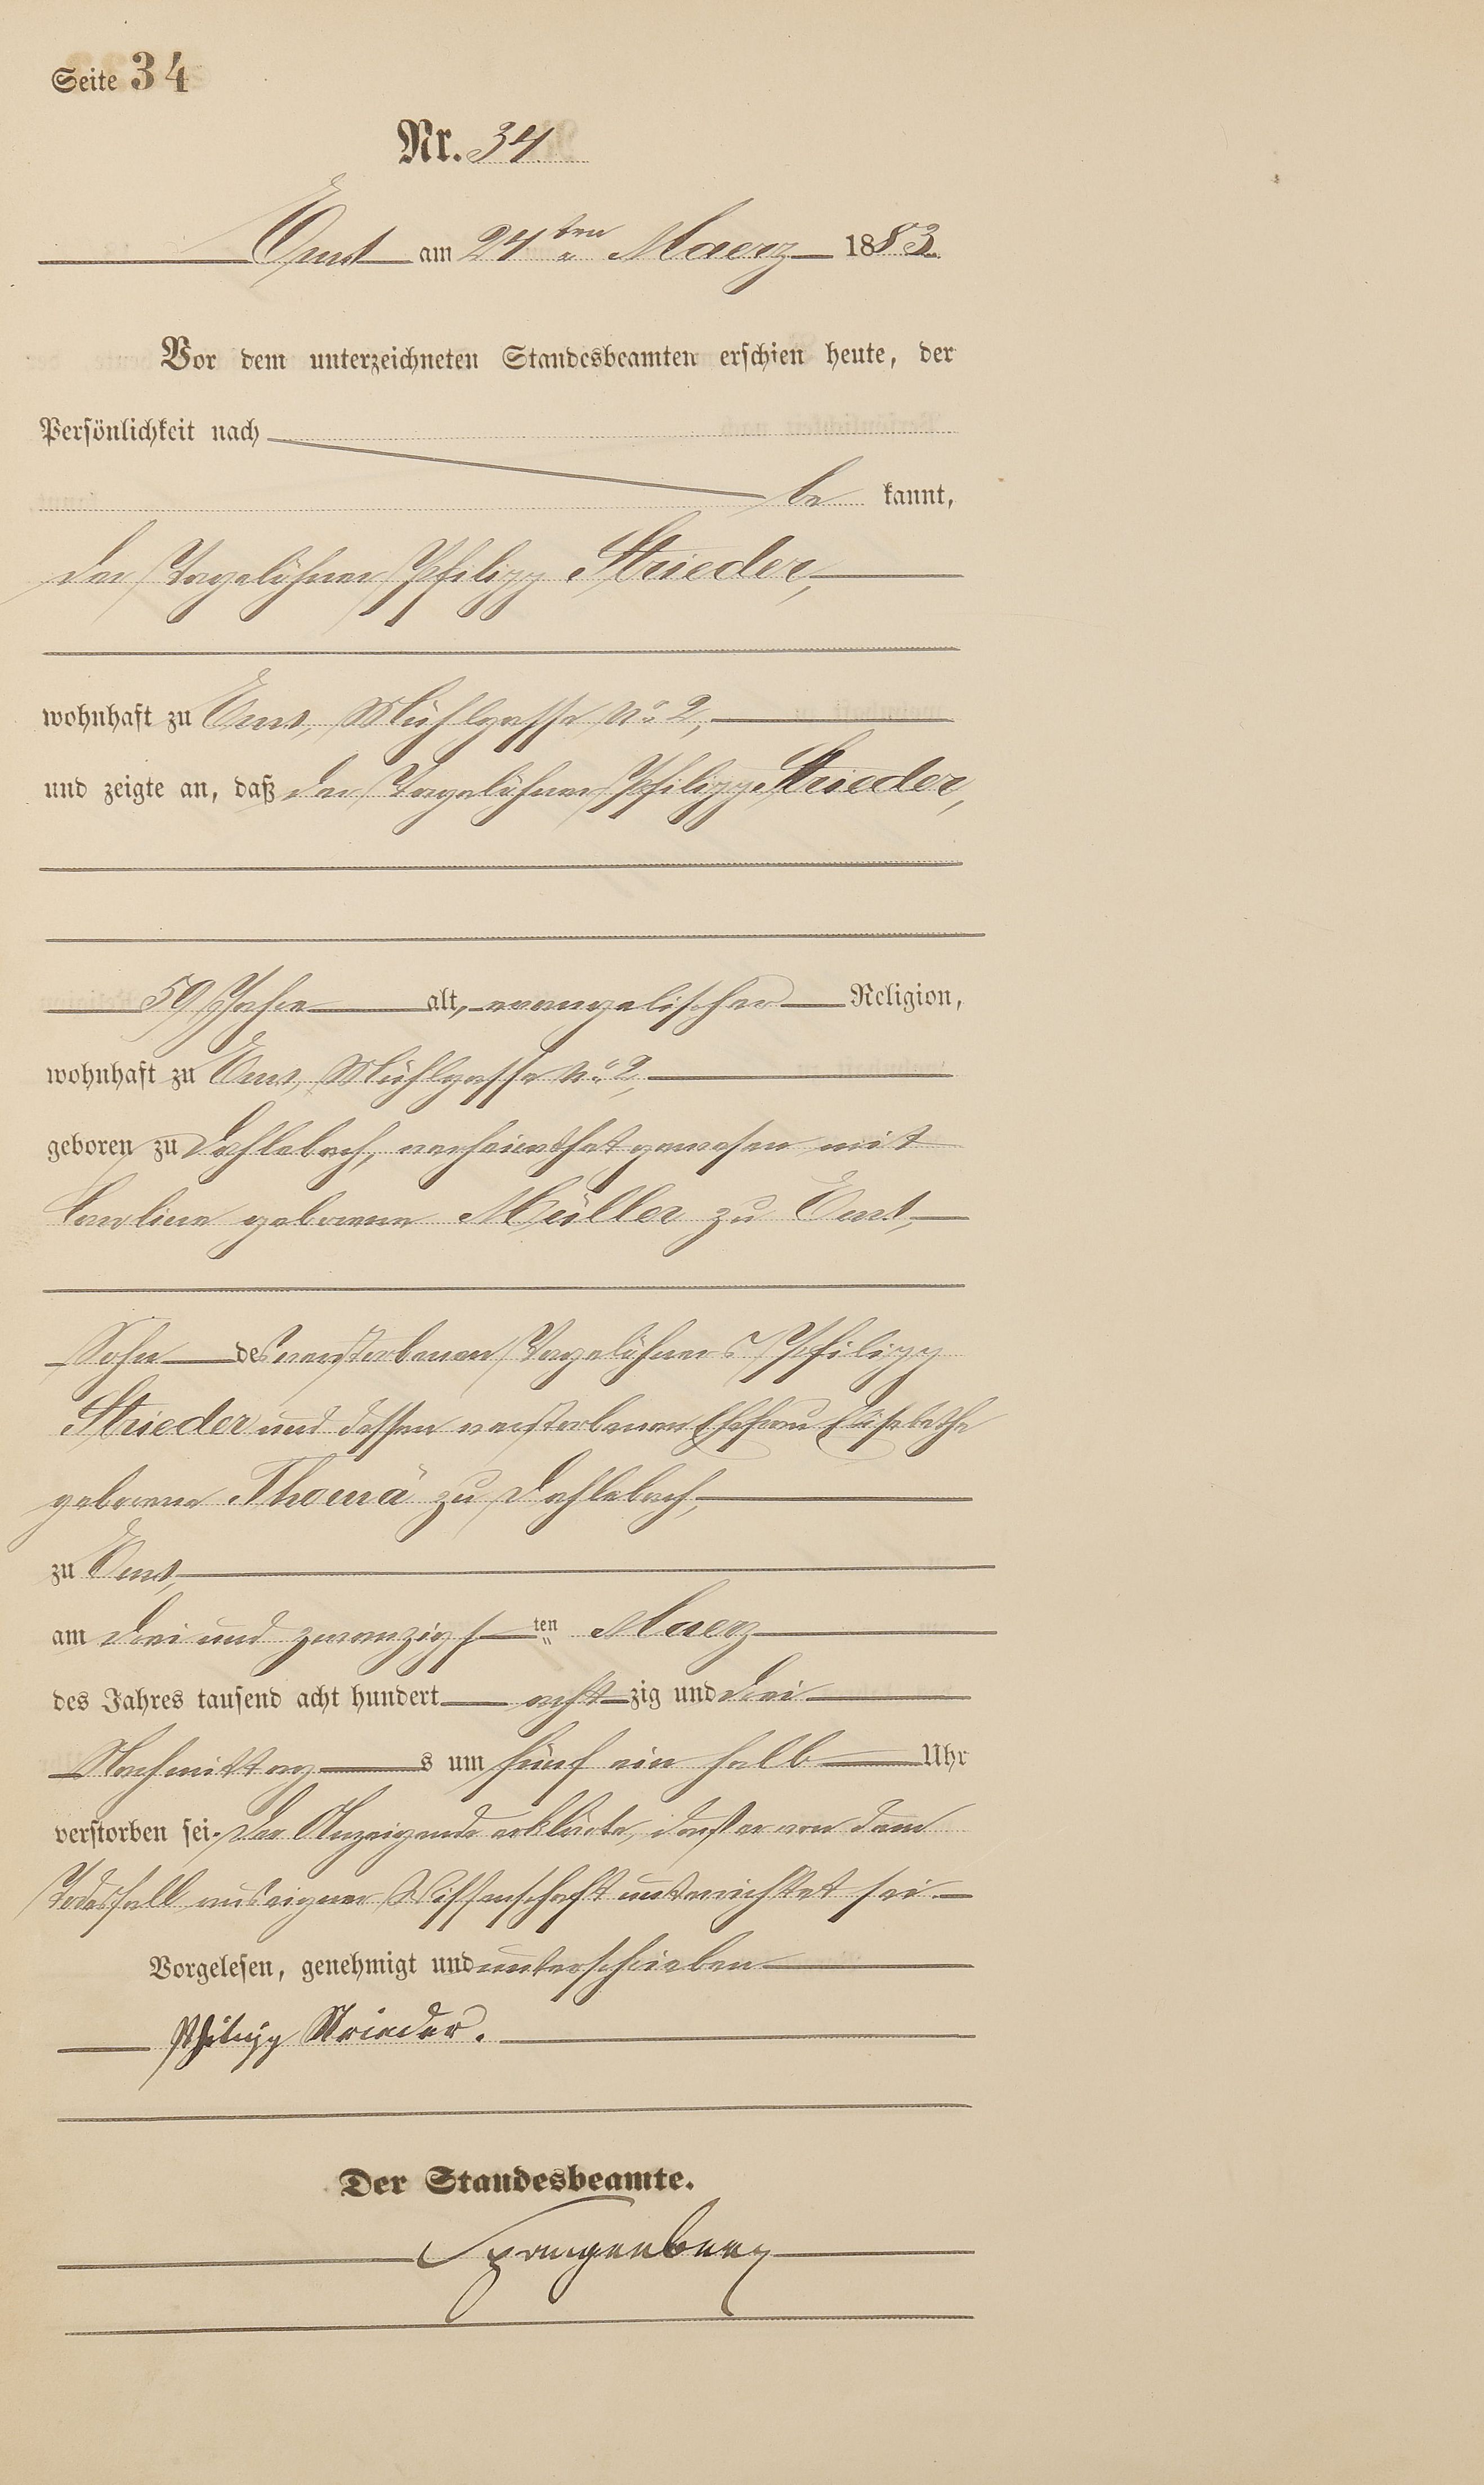 Seite 34
Nr. 34
Ems am 24ten Maerz 1883.
Vor dem unterzeichneten Standesbeamten erschien heute, der
Persönlichkeit nach
be kannt,
der Tagelöhner Philipp Strieder,
wohnhaft zu Ems, Mühlgasse No 2,
und zeigte an, daß der Tagelöhner Philipp Strieder,
59 Jahre alt, evangelischer Religion,
wohnhaft zu Ems, Mühlgasse No 2,
geboren zu verheirathet gewesen mit
Caroline geborene Müller zu Ems,
Sohn des verstorbenen Tagelöhners Philipp
Strieder und dessen verstorbenen Ehefrau Elisabethe
geborene Thomä zu
zu Ems,
am drei und zwanzigsten Maerz
des Jahres tausend acht hundert achtzig und drei
Nachmittags um fünf ein halb Uhr
verstorben sei. Der Anzeigende erklärte, daß er von dem
Todesfall aus eigner Wissenschaft unterrichtet sei.
Vorgelesen, genehmigt und unterschrieben
Philipp Strieder.
Der Standesbeamte.
Spangenberg